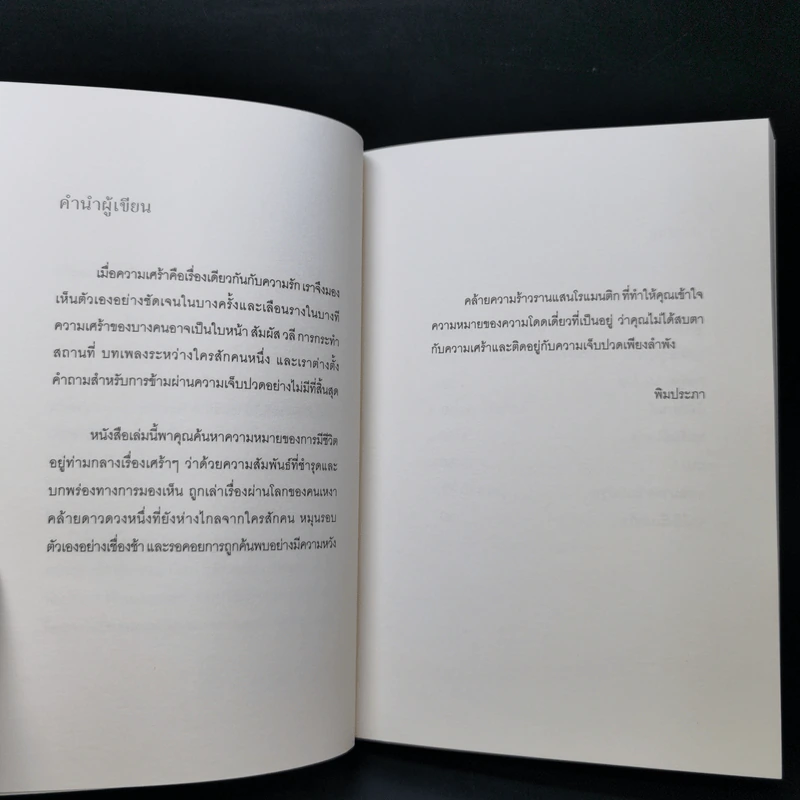 คำนำผู้เขียน
เมื่อความเศร้าคือเรื่องเดียวกันกับความรัก เราจึงมอง
เห็นตัวเองอย่างชัดเจนในบางครั้งและเลือนรางในบางที
ความเศร้าของบางคนอาจเป็นใบหน้า สัมผัส วลี การกระทำ
สถานที่ บทเพลงระหว่างใครสักคนหนึ่ง และเราต่างตั้ง
คำถามสำหรับการข้ามผ่านความเจ็บปวดอย่างไม่มีที่สิ้นสุด
หนังสือเล่มนี้พาคุณค้นหาความหมายของการมีชีวิต
อยู่ท่ามกลางเรื่องเศร้าๆ ว่าด้วยความสัมพันธ์ที่ชำรุดและ
บกพร่องทางการมองเห็น ถูกเล่าเรื่องผ่านโลกของคนเหงา
คล้ายดาวดวงหนึ่งที่ยังห่างไกลจากใครสักคน หมุนรอบ
ตัวเองอย่างเชื่องช้า และรอคอยการถูกค้นพบอย่างมีความหวัง
คล้ายความร้าวรานแสนโรแมนติก ที่ทำให้คุณเข้าใจ
ความหมายของความโดดเดี่ยวที่เป็นอยู่ ว่าคุณไม่ได้สบตา
กับความเศร้าและติดอยู่กับความเจ็บปวดเพียงลำพัง
พิมประภา